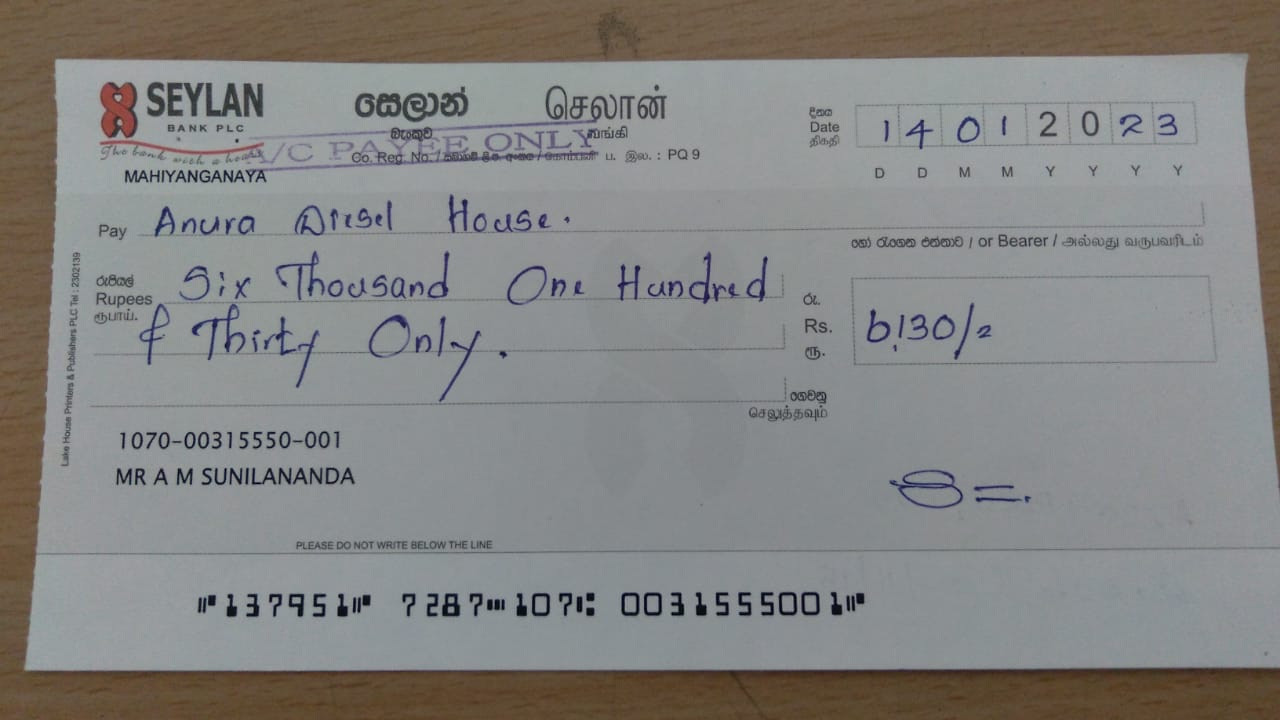 SEYLAN
BANK PLC
The bank with a heart
MAHIYANGANAYA
සෙලාන් செலான்
බැංකුව வங்கி
A/C PAYEE ONLY
Co. Reg. No. / සමාගම් ලි. අංකය / கொம்பனி ப. இல. : PQ 9
දිනය
Date
திகதி
1 4 0 1 2 0 2 3
D D M M Y Y Y Y
Pay Anura Diesel House.
හෝ රැගෙන එන්නාට / or Bearer / அல்லது வருபவரிடம்
රුපියල්
Rupees
ரூபாய்.
Six Thousand One Hundred
& Thirty Only.
රු.
Rs.
ரூ.
6,130/=
ගෙවනු
செலுத்தவும்
Lake House Printers & Publishers PLC Tel : 2302139
1070-00315550-001
MR A M SUNILANANDA
PLEASE DO NOT WRITE BELOW THE LINE
⑈137951⑈ 7287⑉107⑆ 0031555001⑈